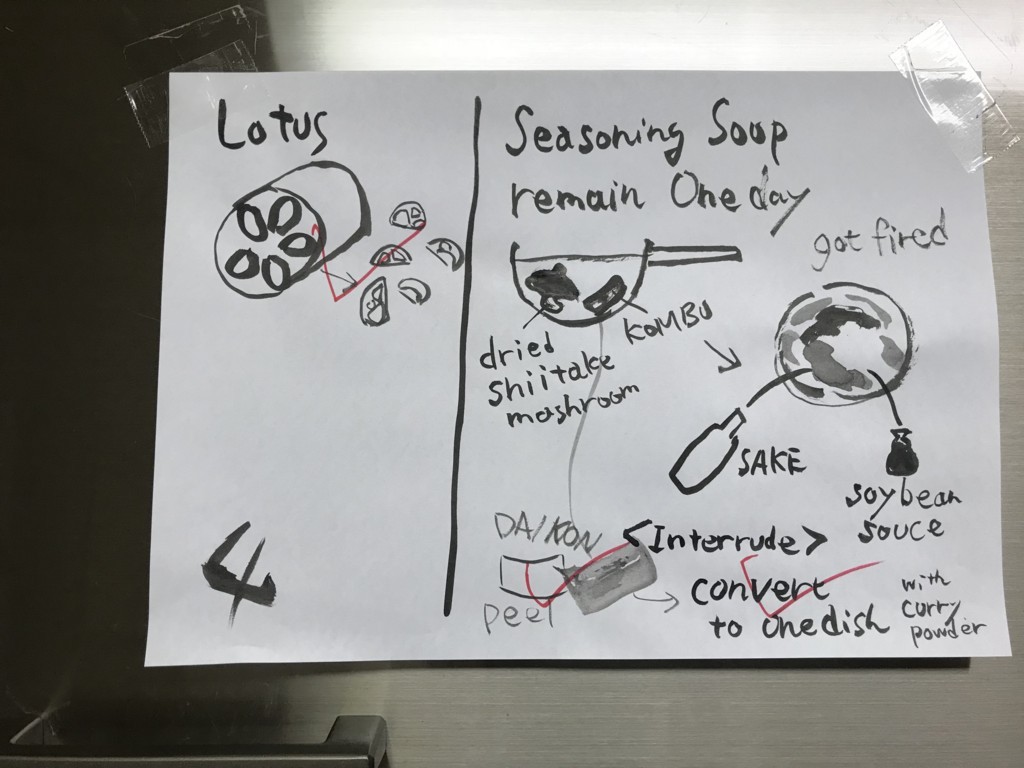 Lotus
4
Seasoning Soup
remain One day
got fired
KOMBU
dried
shiitake
mashroom
SAKE
soybean
souce
DAIKON
peel
<Interrude>
convert
to One dish
with
curry
powder